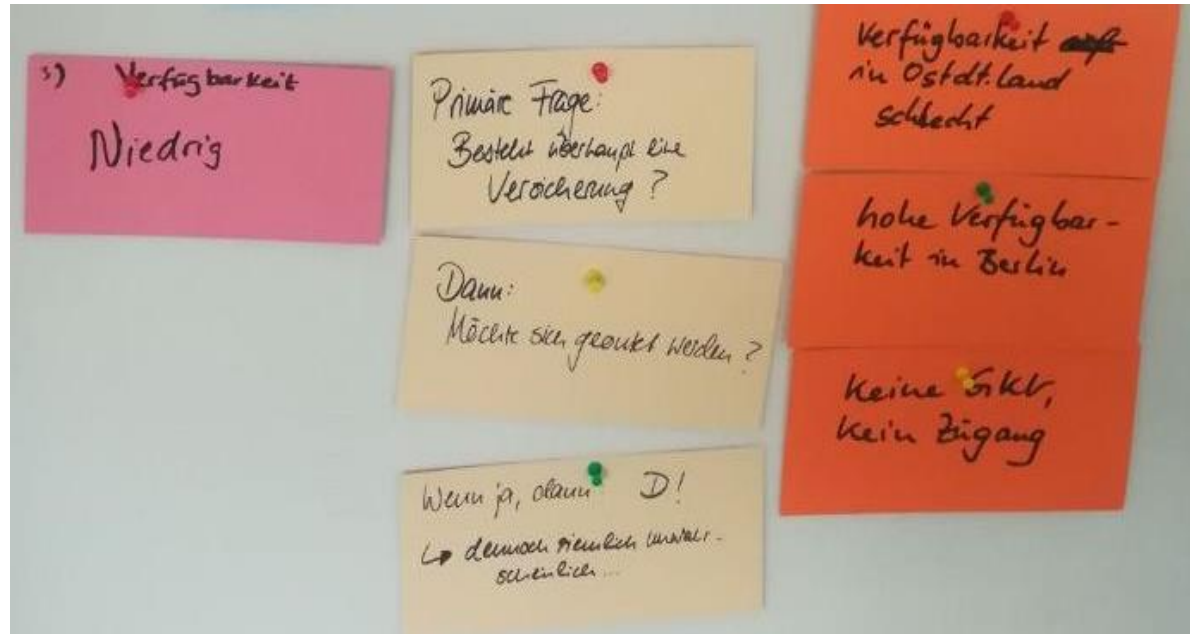 3) Verfügbarkeit
Niedrig
Primäre Frage:
Besteht überhaupt eine
Versicherung?
Dann:
Möchte sich geoutet werden?
Wenn ja, dann D!
↳ dennoch ziemlich unwahr-
scheinlich...
Verfügbarkeit
in Ostdt.land
schlecht
hohe Verfügbar-
keit in Berlin
Keine GKV,
kein Zugang